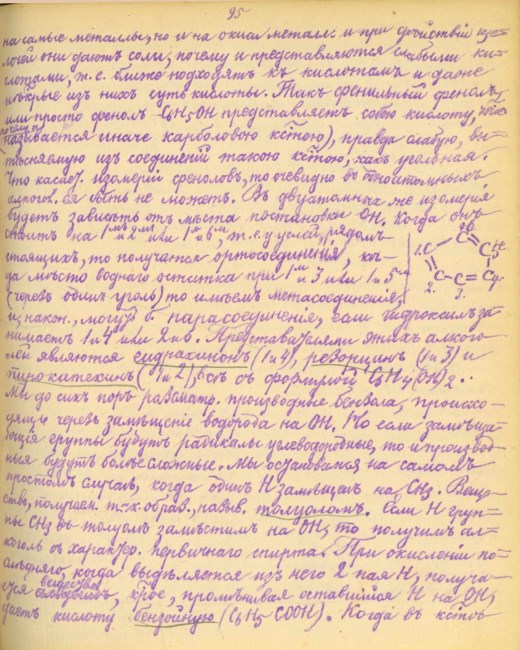 95
на самые металлы, но и на окиси металл. и при действіи ще-
лочей они даютъ соли; почему и представляются слабыми ки-
слотами, т.е. ближе подходятъ къ кислотамъ и даже
нѣкрые изъ нихъ суть кислоты. Такъ фенильный фенолъ,
или просто фенолъ C6H5OH представляетъ собою кислоту,
(почему и называется иначе карболовою кстою), правда слабую, вы-
тѣсняемую изъ соединеній такою кстою, какъ угольная.
Что касаетъ изомеріи феноловъ, то очевидно въ одноатомныхъ
ея быть не можетъ. Въ двуатомныхъ же изомерія
будетъ зависѣть отъ мѣста постановки OH. Когда онъ
стоитъ на 1мъ и 2мъ или 1м и 6м, т.е. у углей, рядомъ
стоящихъ, то получатся ортосоединенія, ко-
да мѣсто воднаго остатка при 1м и 3 или 1 и 5
(черезъ одинъ уголь) то имѣемъ метасоединенія,
и, након., могутъ б. парасоединенія, если гидроксилъ за-
нимаетъ 1 и 4 или 2 и 6. Представителями этихъ алкого-
лей являются гидрохинонъ (1 и 4), резорцинъ (1 и 3) и
пирокатехинъ (1 и 2), всѣ съ формулой C6H4(OH)2.
Мы до сихъ поръ разсматр. производныя бензола, происхо-
дящія черезъ замѣщеніе водорода на OH. Но если замѣща-
ющія группы будутъ радикалы углеводородные, то и производ-
ныя будутъ болѣе сложные. Мы остановимся на самомъ
простомъ случаѣ, когда одинъ H замѣщенъ на CH3. Веще-
ство, получаем. т-к. образ., назыв. толуоломъ. Если H груп-
пы CH3 въ толуолѣ замѣстимъ на OH, то получимъ ал-
коголь съ характеромъ первичнаго спирта. При окисленіи по-
слѣдняго, когда выдѣляется изъ него 2 пая H, получа-
ется вещество, кдое, промѣнивая оставшійся H на OH,
даетъ кислоту бензойную (C6H5COOH). Когда въ кстѣ